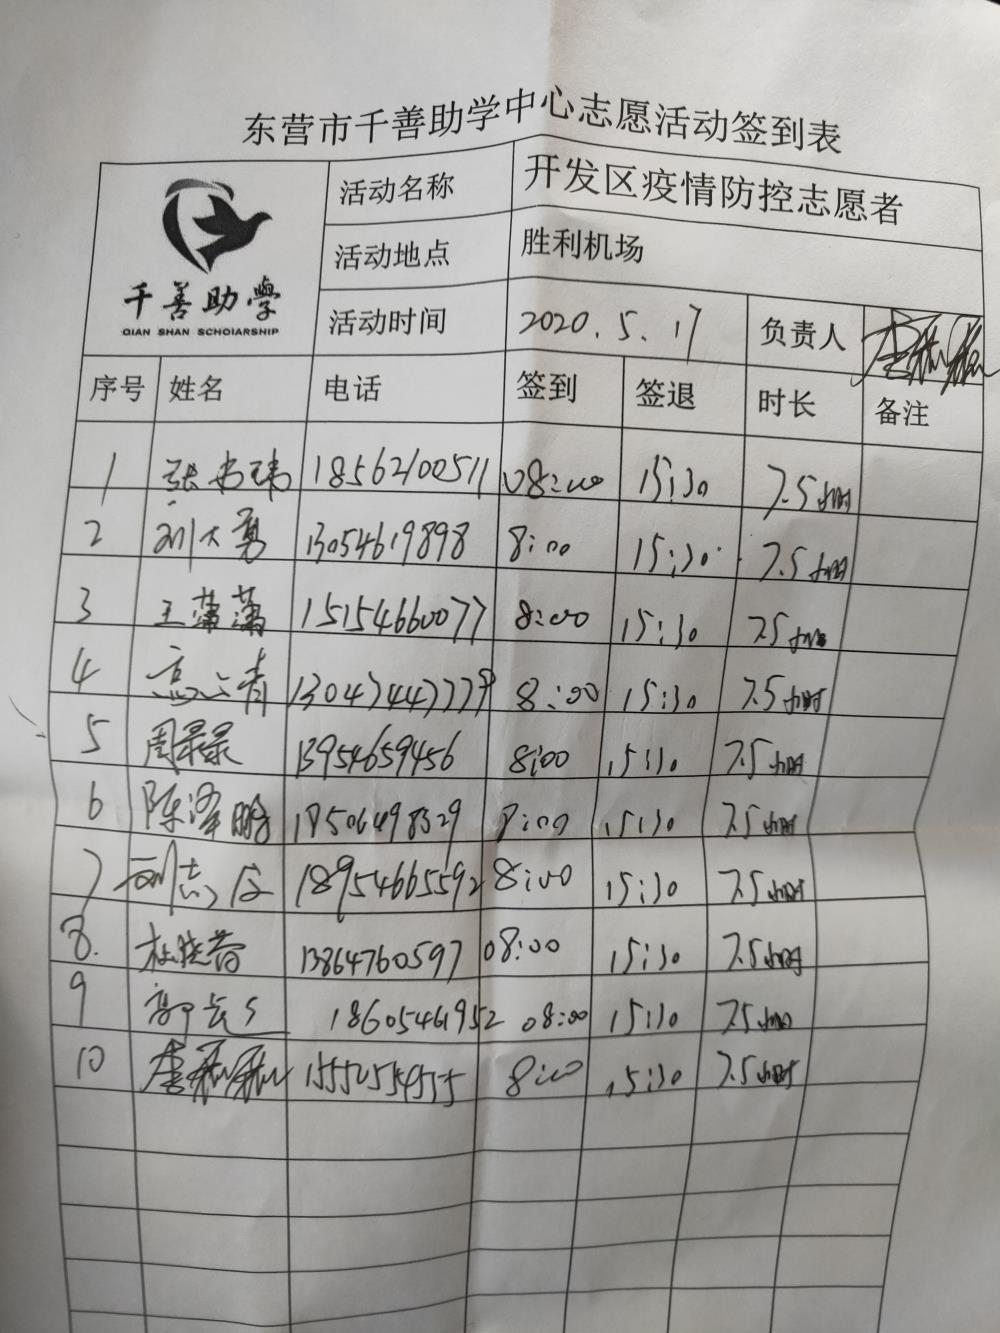 东营市千善助学中心志愿活动签到表
千善助學
QIAN SHAN SCHOIARSHIP
活动名称 开发区疫情防控志愿者
活动地点 胜利机场
活动时间 2020.5.17 负责人
序号 姓名 电话 签到 签退 时长 备注
1 张书玮 18562100511 08:00 15:30 7.5小时
2 刘大勇 13054619898 8:00 15:30 7.5小时
3 王潇潇 15154660077 8:00 15:30 7.5小时
4 15:30 8:00 7.5小时
5 周录录 13954659456 8:00 15:30 7.5小时
6 陈泽鹏 8:00 15:30 7.5小时
7 刘志 18954665592 8:00 15:30 7.5小时
8. 杜晓蓉 13864760597 08:00 15:30 7.5小时
9 18605461952 08:00 15:30 7.5小时
10 8:00 15:30 7.5小时